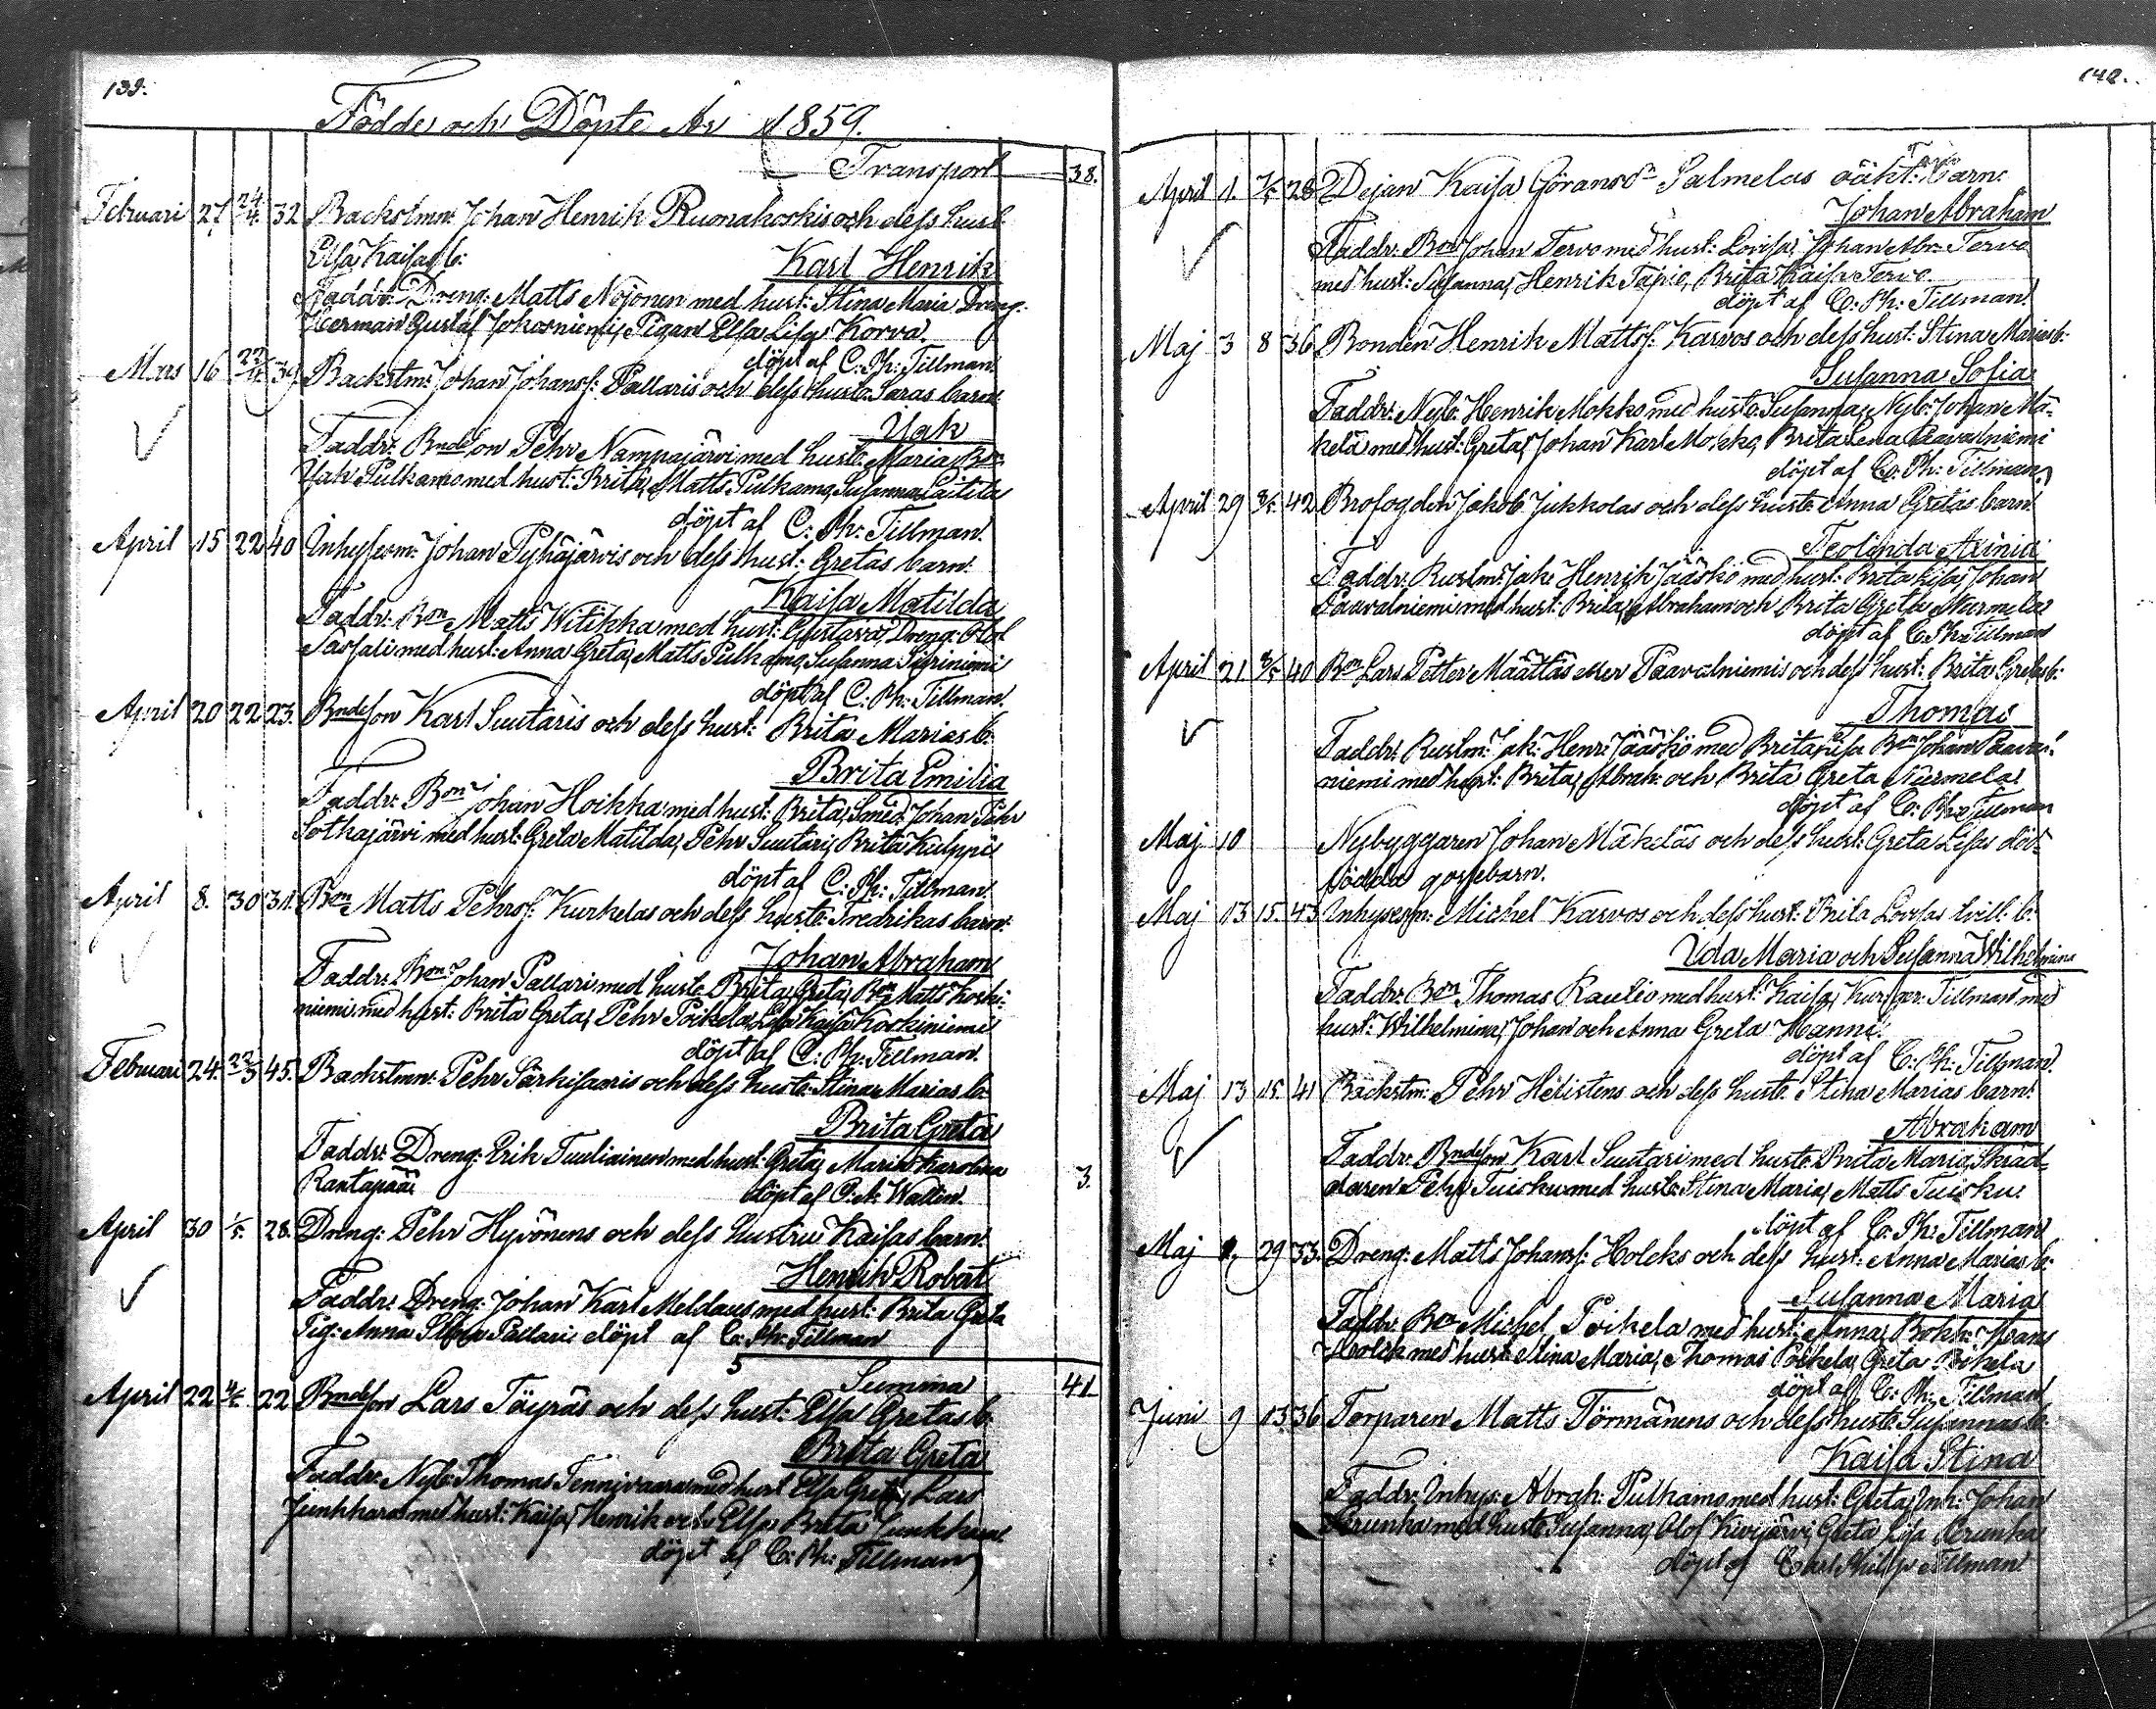 139.
Födde och Döpte År 1859.
Transport 38.
Februari 27 24/4. 32 Backstmn: Johan Henrik Ruonakoskis och dess hust:
Elsa Kaisas b:
Karl Henrik
Faddr: Dreng: Matts Nojonen med hust: Stina Maria Dreng:
Herman Gustaf Pigan Elsa Lisa Korva.
döpt af C: Ph: Tillman.
Mars 16 22/4. 39. Backstm: Johan Johanss: Pallaris och dess hust: Saras barn
Isak
Faddr: Bndeson Pehr Nampajärvi med hust: Maria, Bon
Isak Pulkamo med hust: Brita, Matts Pulkamo, Susanna Paitila
döpt af C: Ph: Tillman.
April 15 22 40 Inhysesm: Johan Pyhäjärvis och dess hust: Gretas barn:
Kaisa Matilda
Faddr: Bon Matts Witikka med hust: Gustava, Dreng: Olof
Sassali med hust: Anna Greta, Matts Pulkamo, Susanna Siirinimi
döpt af C: Ph: Tillman.
April 20 22 23. Bndeson Karl Suutaris och dess hust: Brita Marias b:
Brita Emilia
Faddr: Bon Johan Hoikka med hust: Brita, Smed: Johan Pehr
Sotkajärvi med hust: Greta Matilda, Pehr Suutari, Brita Kulppi
döpt af C: Ph: Tillman.
April 8. 30 31. Bon Matts Pehrss: Kurkelas och dess hust: Fredrikas barn:
Johan Abraham
Faddr: Bon Johan Pallari med hust: Brita Greta, Bon Matts Koski-
niemi med hust: Brita Greta, Pehr Poikela, Lisa Kaisa Koskiniemi
döpt af C: Ph: Tillman.
Februari 24. 22/3 45. Backstmn: Pehr Särkisaaris och dess hust: Stina Marias b:
Brita Greta
Faddr: Dreng: Erik Tuuliainen med hust: Greta, Maria Karolina
Rantapää döpt af C: A: Wallin. 3.
April 30 1/5. 28. Dreng: Pehr Hyvönens och dess hustru Kaisas barn:
Henrik Robert
Faddr: Dreng: Johan Karl Meldaus med hust: Brita Greta
Pig: Anna Stina Pallari döpt af C: Ph: Tillman
Summa 41
April 22 4/5 22 Bndeson Lars Töyräs och dess hust: Elsa Gretas b:
Brita Greta
Faddr: Nyb: Thomas Tennivaara med hust Elsa Greta, Lars
Junkkara med hust: Kaisa, Henrik och Elsa Brita Junkkara
döpt af C: Ph: Tillman
140.
April 1. 28 Pejan Kaisa Göransdr Salmelas oäkt: barn:
Johan Abraham
Faddr: Bon Johan Tervo med hust: Lovisa, Johan Abr: Tervo
med hust: Susanna, Henrik Tapio, Brita Kaisa Tervo
döpt af C: Ph: Tillman.
Maj 3 8 36 Bonden Henrik Mattss: Karvos och dess hust: Stina Marias b:
Susanna Sofia
Faddr: Nyb: Henrik Mokko med hust: Susanna, Nyb: Johan Mä-
kelä med hust: Greta, Johan Karl Mokko, Brita Lena Paavalniemi
döpt af C: Ph: Tillman.
April 29 8/5. 42 Brofogden Jakob Jukkolas och dess hust: Anna Gretas barn:
Teolinda Axinia
Faddr: Rustm: Jak: Henrik Jääskö med hust: Brita Kaisa, Johan
Paavalniemi med hust: Brita, Abraham och Brita Greta Nurmela
döpt af C: Ph: Tillman
April 21 8/5 40 Bon Lars Petter Määttäs eller Paavalniemis och dess hust: Brita Gretas b:
Thomas
Faddr: Rustm: Jak: Henr: Jääskö med Brita Kaisa Bon Johan Paaval-
niemi med hust: Brita, Abrah: och Brita Greta Nurmela
döpt af C: Ph: Tillman
Maj 10 Nybyggaren Johan Mäkeläs och dess hust: Greta Lisas död-
födda gossebarn.
Maj 13 15. 43 Inhysesm: Michel Karvos och dess hust: Brita Lovisas tvill: b:
Ida Maria och Susanna Wilhelmina
Faddr: Bon Thomas Rautio med hust: Kaisa, Tillman med
hust: Wilhelmina, Johan och Anna Greta Hanni.
döpt af C: Ph: Tillman.
Maj 13 15. 41 Backstm: Pehr Helistens och dess hust: Stina Marias barn:
Abraham
Faddr: Bndeson Karl Suutari med hust: Brita Maria, Skräd-
daren Pehr Tuisku med hust: Stina Maria, Matts Tuisku.
döpt af C: Ph: Tillman.
Maj 29 33. Dreng: Matts Johanss: Holcks och dess hust: Anna Marias b:
Susanna Maria
Faddr: Bon Michel Poikela med hust: Anna, Hans
Holck med hust: Stina Maria, Thomas Poikela, Greta Poikela
döpt af C: Ph: Tillman
Juni 9 13. 36 Torparen Matts Törmänens och dess hust: Susannas b:
Kaisa Stina
Faddr: Inhys: Abrah: Pulkamo med hust: Greta, Inh: Johan
Krunka med hust: Susanna, Olof Kivijärvi, Greta Lisa Krunka
döpt af Carl Philip Tillman